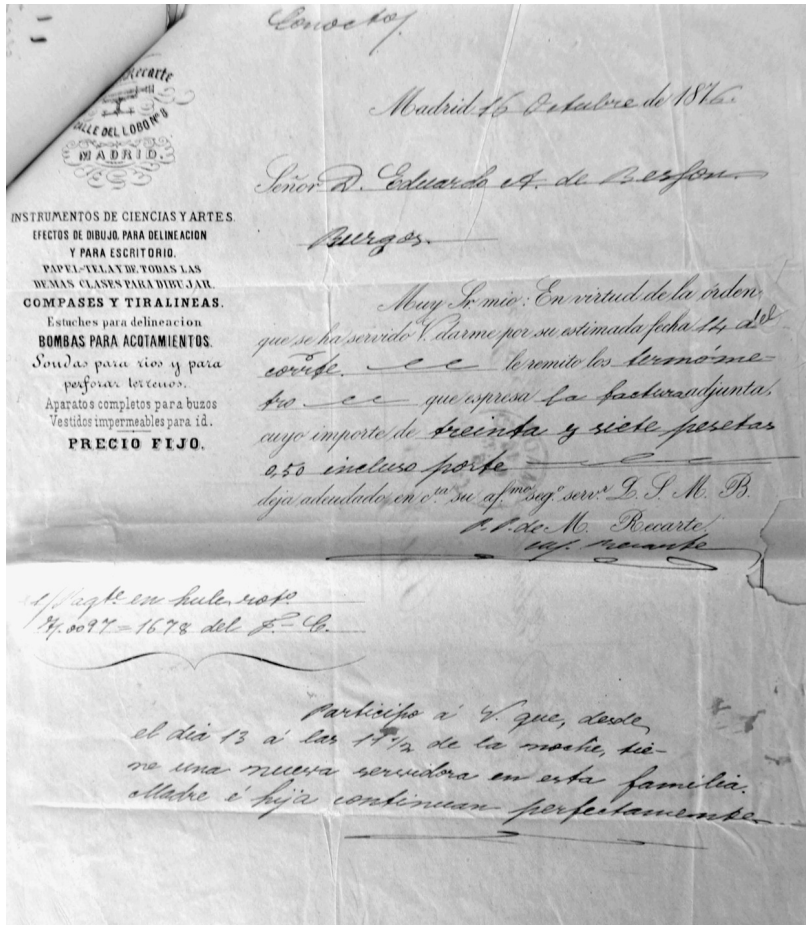 Recarte
CALLE DEL LOBO Nº 8
MADRID.
INSTRUMENTOS DE CIENCIAS Y ARTES.
EFECTOS DE DIBUJO, PARA DELINEACION
Y PARA ESCRITORIO.
PAPEL-TELA Y DE TODAS LAS
DEMAS CLASES PARA DIBUJAR.
COMPASES Y TIRALINEAS.
Estuches para delineacion
BOMBAS PARA ACOTAMIENTOS.
Sondas para rios y para
perforar terrenos.
Aparatos completos para buzos
Vestidos impermeables para id.
PRECIO FIJO.
Madrid 16 Octubre de 1876.
Señor D. Eduardo A. de Besson.
Burgos.
Muy Sr. mio: En virtud de la órden
que se ha servido V. darme por su estimada fecha 14 del
corrte. le remito los termóme-
tro que espresa la factura adjunta,
cuyo importe de treinta y siete pesetas
0,50 incluso porte
deja adeudado en cta su afmo segº servr Q. S. M. B.
P. P. de M. Recarte
1/ Paqte en hule
1678 del F.-C.
Participo á V. que, desde
el dia 13 á las 11 1/2 de la noche, tie-
ne una nueva servidora en esta familia.
Madre é hija continuan perfectamente.